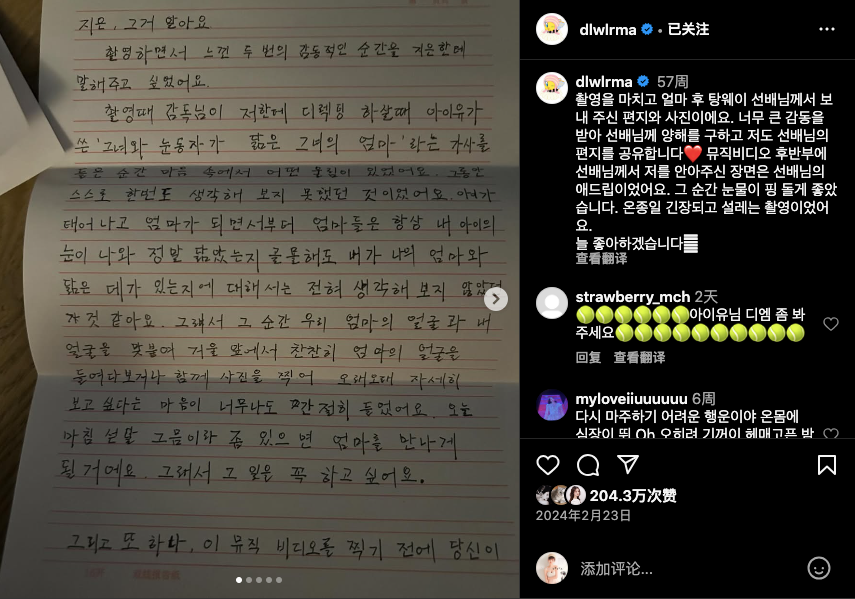 지은, 그거 알아요
촬영하면서 느낀 두 번의 감동적인 순간을 지은한테
말해주고 싶었어요.
촬영때 감독님이 저한테 디렉팅 하실때 아이유가
쓴 '그녀와 눈동자가 닮은 그녀의 엄마'라는 가사를
듣는 순간 마음 속에서 어떤 울림이 있었어요. 그동안
스스로 한번도 생각해 보지 못했던 것이었어요. 아이가
태어나고 엄마가 되면서부터 엄마들은 항상 내 아이의
눈이 나와 정말 닮았는지 골몰해도 내가 나의 엄마와
닮은 데가 있는지에 대해서는 전혀 생각해 보지 않았던
것 같아요. 그래서 그 순간 우리 엄마의 얼굴과 내
얼굴을 맞붙여 거울 앞에서 찬찬히 엄마의 얼굴을
들여다보거나 함께 사진을 찍어 오래오래 자세히
보고 싶다는 마음이 너무나도 간절히 들었어요. 오늘
마침 섣달 그믐이라 좀 있으면 엄마를 만나게
될 거예요. 그래서 그 일을 꼭 하고 싶어요.
그리고 또 하나, 이 뮤직 비디오를 찍기 전에 당신이
dlwlrma • 已关注
dlwlrma 57周
촬영을 마치고 얼마 후 탕웨이 선배님께서 보
내 주신 편지와 사진이에요. 너무 큰 감동을
받아 선배님께 양해를 구하고 저도 선배님의
편지를 공유합니다❤️ 뮤직비디오 후반부에
선배님께서 저를 안아주신 장면은 선배님의
애드립이었어요. 그 순간 눈물이 핑 돌게 좋았
습니다. 온종일 긴장되고 설레는 촬영이었어
요.
늘 좋아하겠습니다
查看翻译
strawberry_mch 2天
🎾🎾🎾🎾🎾🎾아이유님 디엠 좀 봐
주세요🎾🎾🎾🎾🎾🎾🎾🎾🎾🎾
回复 查看翻译
myloveiiuuuuuu 6周
다시 마주하기 어려운 행운이야 온몸에
심장이 뛰 Oh 오히려 기꺼이 헤매고픈 밤
204.3万次赞
2024年2月23日
添加评论...